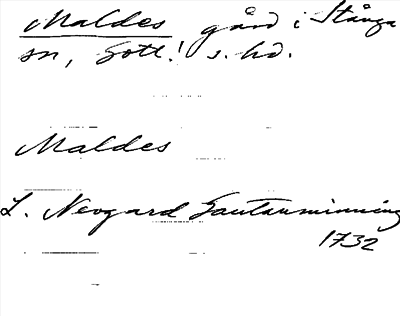 Maldes gård i Stånga
sn, Gotl. s. hd.
Maldes
L. Neogard Gautauminning
1732